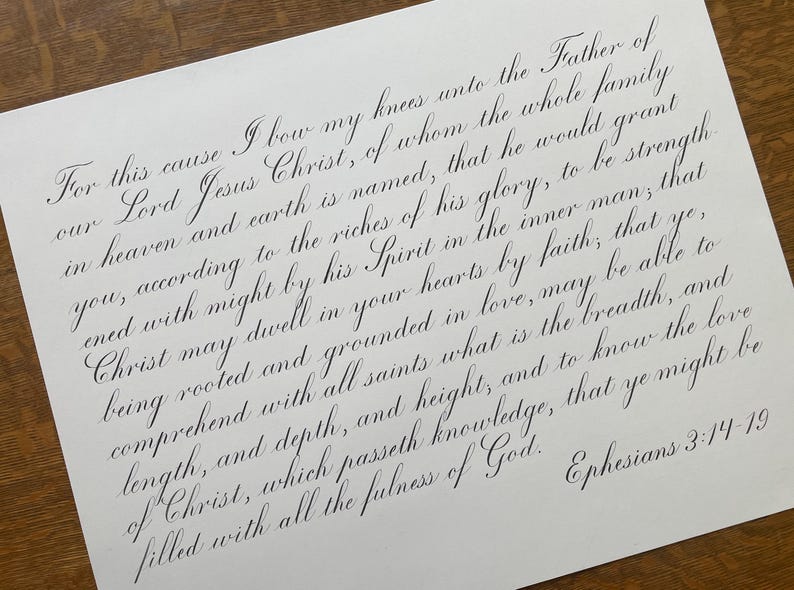 For this cause I bow my knees unto the Father of
our Lord Jesus Christ, of whom the whole family
in heaven and earth is named, that he would grant
you, according to the riches of his glory, to be strength-
ened with might by his Spirit in the inner man; that
Christ may dwell in your hearts by faith; that ye,
being rooted and grounded in love, may be able to
comprehend with all saints what is the breadth, and
length, and depth, and height; and to know the love
of Christ, which passeth knowledge, that ye might be
filled with all the fulness of God.
Ephesians 3:14-19